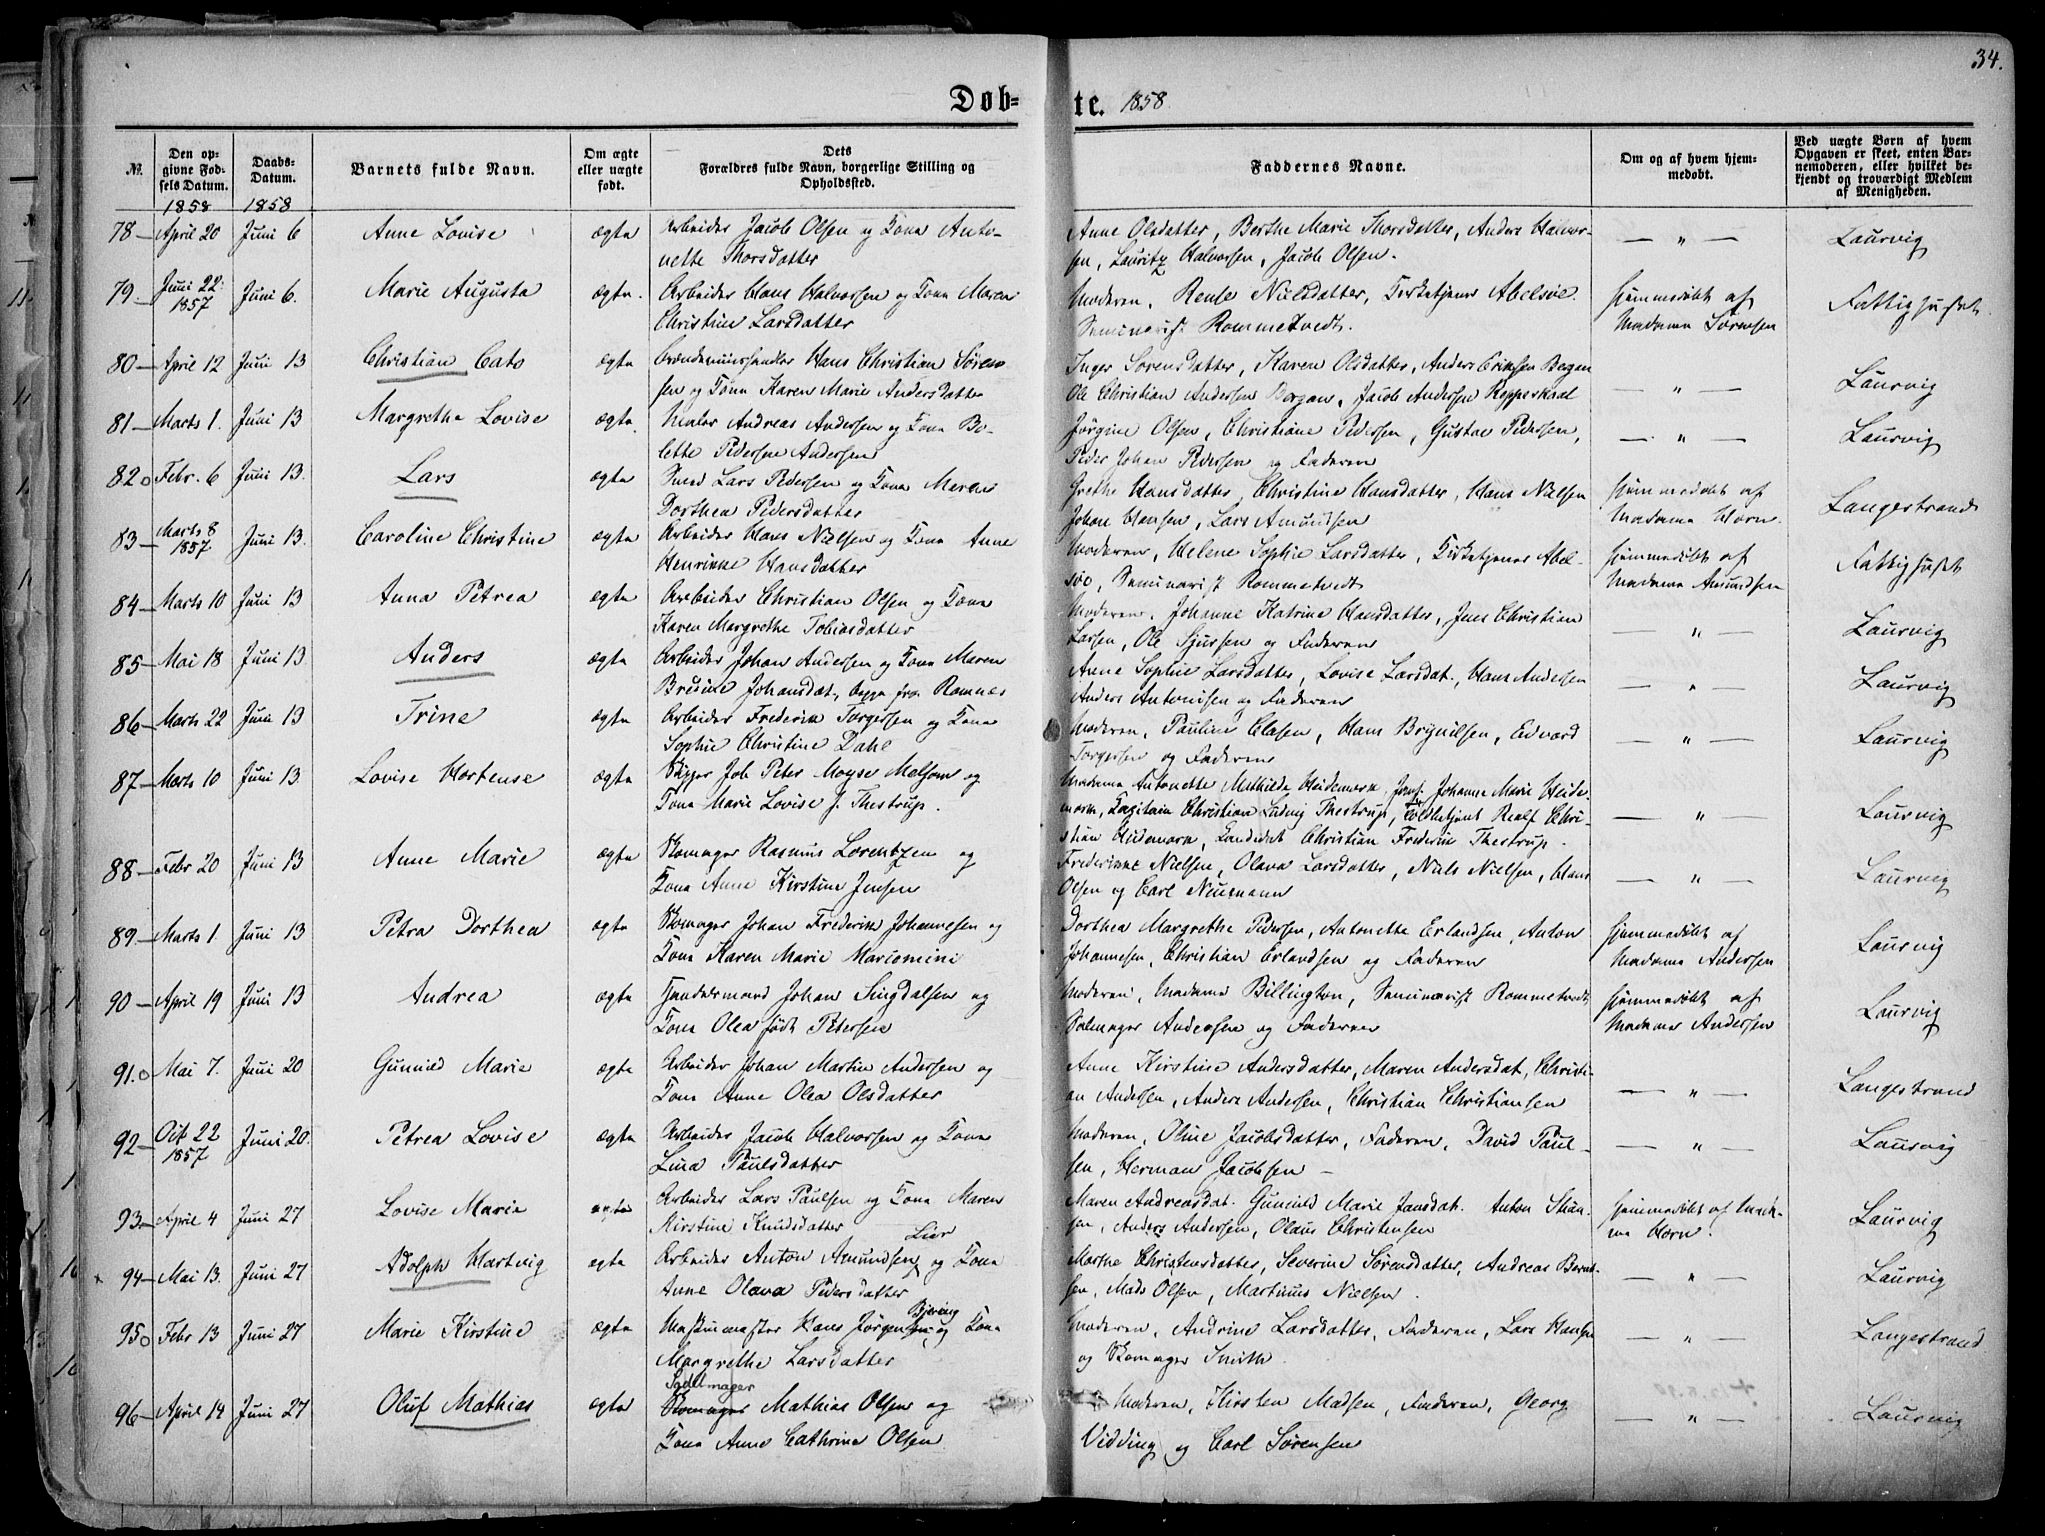 34.
Døb=
te. 1858
№.
Den op=
givne Fød=
sels Datum.
1858
Daabs=
Datum.
1858
Barnets fulde Navn.
Om ægte
eller uægte
født.
Dets
Forældres fulde Navn, borgerlige Stilling og
Opholdssted.
Faddernes Navne.
Om og af hvem hjem=
medøbt.
Ved uægte Børn af hvem
Opgaven er skeet, enten Bar=
nemoderen, eller hvilket be=
kjendt og troværdigt Medlem
af Menigheden.
78 — April 20 Juni 6 Anne Lovise ægte Arbeider Jacob Olsen og Kona Anto- Anne Olsdatter, Berthe Marie Thorsdatter, Anders Halvor- — „ — Laurvig
nette Thorsdatter sen, Lauritz Halvorsen, Jacob Olsen.
79 — Juni 22. 1857 Juni 6. Marie Augusta ægte. Arbeider Hans Halvorsen og Kona Maren Moderen, Neule Nielsdatter, Kirketjener Abelsøe. hjemmedøbt af Fattighuset.
Christine Larsdatter Seminarist Rommetvedt. Madame Sørensen
80 — April 12 Juni 13 Christian Cato ægte Hans Christian Søren- Inger Sørensdatter, Karen Olsdatter, Anders Eriksen Bergan — „ — Laurvig
sen og Kona Karen Marie Andersdatter Ole Christian Andersen Bergan, Jacob Andersen Roppeskaal
81 — Marts 1. Juni 13 Margrethe Lovise ægte. Maler Andreas Andersen og Kona Bo- Jørgine Olsen, Christiane Pedersen, Gustav Pedersen, — „ — Laurvig
lette Pedersen Andersen Peder Johan Pedersen og Faderen
82 o Febr. 6 Juni 13. Lars ægte Smed Lars Pedersen og Kona Maren Grethe Hansdatter, Christine Hansdatter, Hans Nielsen hjemmedøbt af Langestrand
Dorthea Pedersdatter Johan Hansen, Lars Amundsen Madame Horn.
83 — Marts 8 1857 Juni 13. Caroline Christine ægte Arbeider Hans Nielsen og Kona Anne Moderen, Helene Sophie Larsdatter, Kirketjener Abel- hjemmedøbt af Fattighuset
Henrikke Hansdatter søe, Seminarist Rommetvedt Madame Amundsen
84 — Marts 10 Juni 13 Anna Petrea ægte Arbeider Christian Olsen og Kona Moderen, Johanne Katrine Hansdatter, Jens Christian — „ — Laurvig
Karen Margrethe Tobiasdatter Larsen, Ole Sjursen og Faderen
85 — Mai 18 Juni 13 Anders ægte Arbeider Johan Andersen og Kona Maren Anne Sophie Larsdatter, Lovise Larsdat., Hans Andersen — „ — Laurvig
Bresine Johansdat., begge fra Romnes Anders Antonisen og Faderen
86 — Marts 22 Juni 13 Trine ægte Arbeider Frederik Torgersen og Kona Moderen, Pauline Clasen, Hans Brynilsen, Edvard — „ — Laurvig
Sophie Christine Dahl Torgersen og Faderen
87 — Marts 10 Juni 13. Lovise Hortense ægte Skipper Job Peter Moyse Melsom og Madame Antonette Mathilde Heidemark, Jomf. Johanne Marie Heide- — „ — Laurvig
Kona Marie Lovise f. Thestrup. mark, Kapitain Christian Ludvig Thestrup, Toldbetjent Realf Chri-
stian Heidemark, Kandidat Christian Frederik Thestrup.
88 — Febr 20 Juni 13 Anne Marie ægte Skomager Rasmus Lorentzen og Frederikke Nielsen, Olava Larsdatter, Niels Nielsen, Hans — „ — Laurvig
Kona Anne Kirstine Jensen Olsen og Carl Neumann
89 — Marts 1. Juni 13 Petra Dorthea ægte Skomager Johan Frederik Johannesen og Dorthea Margrethe Pedersen, Antonette Erlandsen, Anton hjemmedøbt af Laurvig
Kona Karen Marie Marcomini Johannesen, Christian Erlandsen og Faderen Madame Andersen
90 — April 19 Juni 13 Andrea ægte Handelsmand Johan Singdalsen og Moderen, Madame Billington, Seminarist Rommetvedt hjemmedøbt af Laurvig
Kona Olea født Petersen Salmager Andersen og Faderen Madame Andersen
91. o Mai 7. Juni 20 Gunnild Marie ægte Arbeider Johan Martin Andersen og Anne Kirstine Andersdatter, Maren Andersdat, Christi- — „ — Langestrand
Kona Anne Olea Olsdatter an Andersen, Anders Andersen, Christian Christiansen
92 — Oct 22 1857 Juni 20. Petrea Lovise ægte Arbeider Jacob Halvorsen og Kona Moderen, Oline Jacobsdatter, Faderen, David Paul- — „ — Laurvig
Lina Paulsdatter sen, Herman Jacobsen —
93 — April 4 Juni 27 Lovise Marie ægte Arbeider Lars Paulsen og Kona Maren Maren Andreasdat. Gunnild Marie Jansdat. Anton hjemmedøbt af Mada- Laurvig
Kirstine Knudsdatter sen, Anders Andersen, Olaus Christensen me Horn.
Lier
x 94 — Mai 13. Juni 27 Adolph Hartvig ægte Arbeider Anton Amundsen og Kona Marthe Christensdatter, Severine Sørensdatter, Andreas Bernt- — „ — Laurvig
Anne Olava Pedersdatter sen, Mads Olsen, Martinus Nielsen.
Bjering
95 o Febr 13 Juni 27 Marie Kirstine ægte Maskinmester Hans Jørgensen og Kona Moderen, Andrine Larsdatter, Faderen, Lars Hansen — „ — Langestrand
Margrethe Larsdatter og Skomager Smith.
Sadelmager
96 — April 14 Juni 27 Oluf Mathias ægte Skomager Mathias Olsen og Moderen, Kirsten Madsen, Faderen, Georg — „ — Laurvig
Kona Anne Cathrine Olsen Vidding og Carl Sørensen